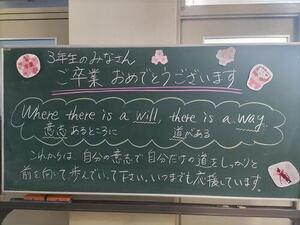 3年生のみなさん
ご卒業 おめでとうございます
Where there is a will, there is a way
意志あるところに 道がある
これからは、自分の意志で自分だけの道をしっかりと
前を向いて歩んでいって下さい。いつまでも応援しています。